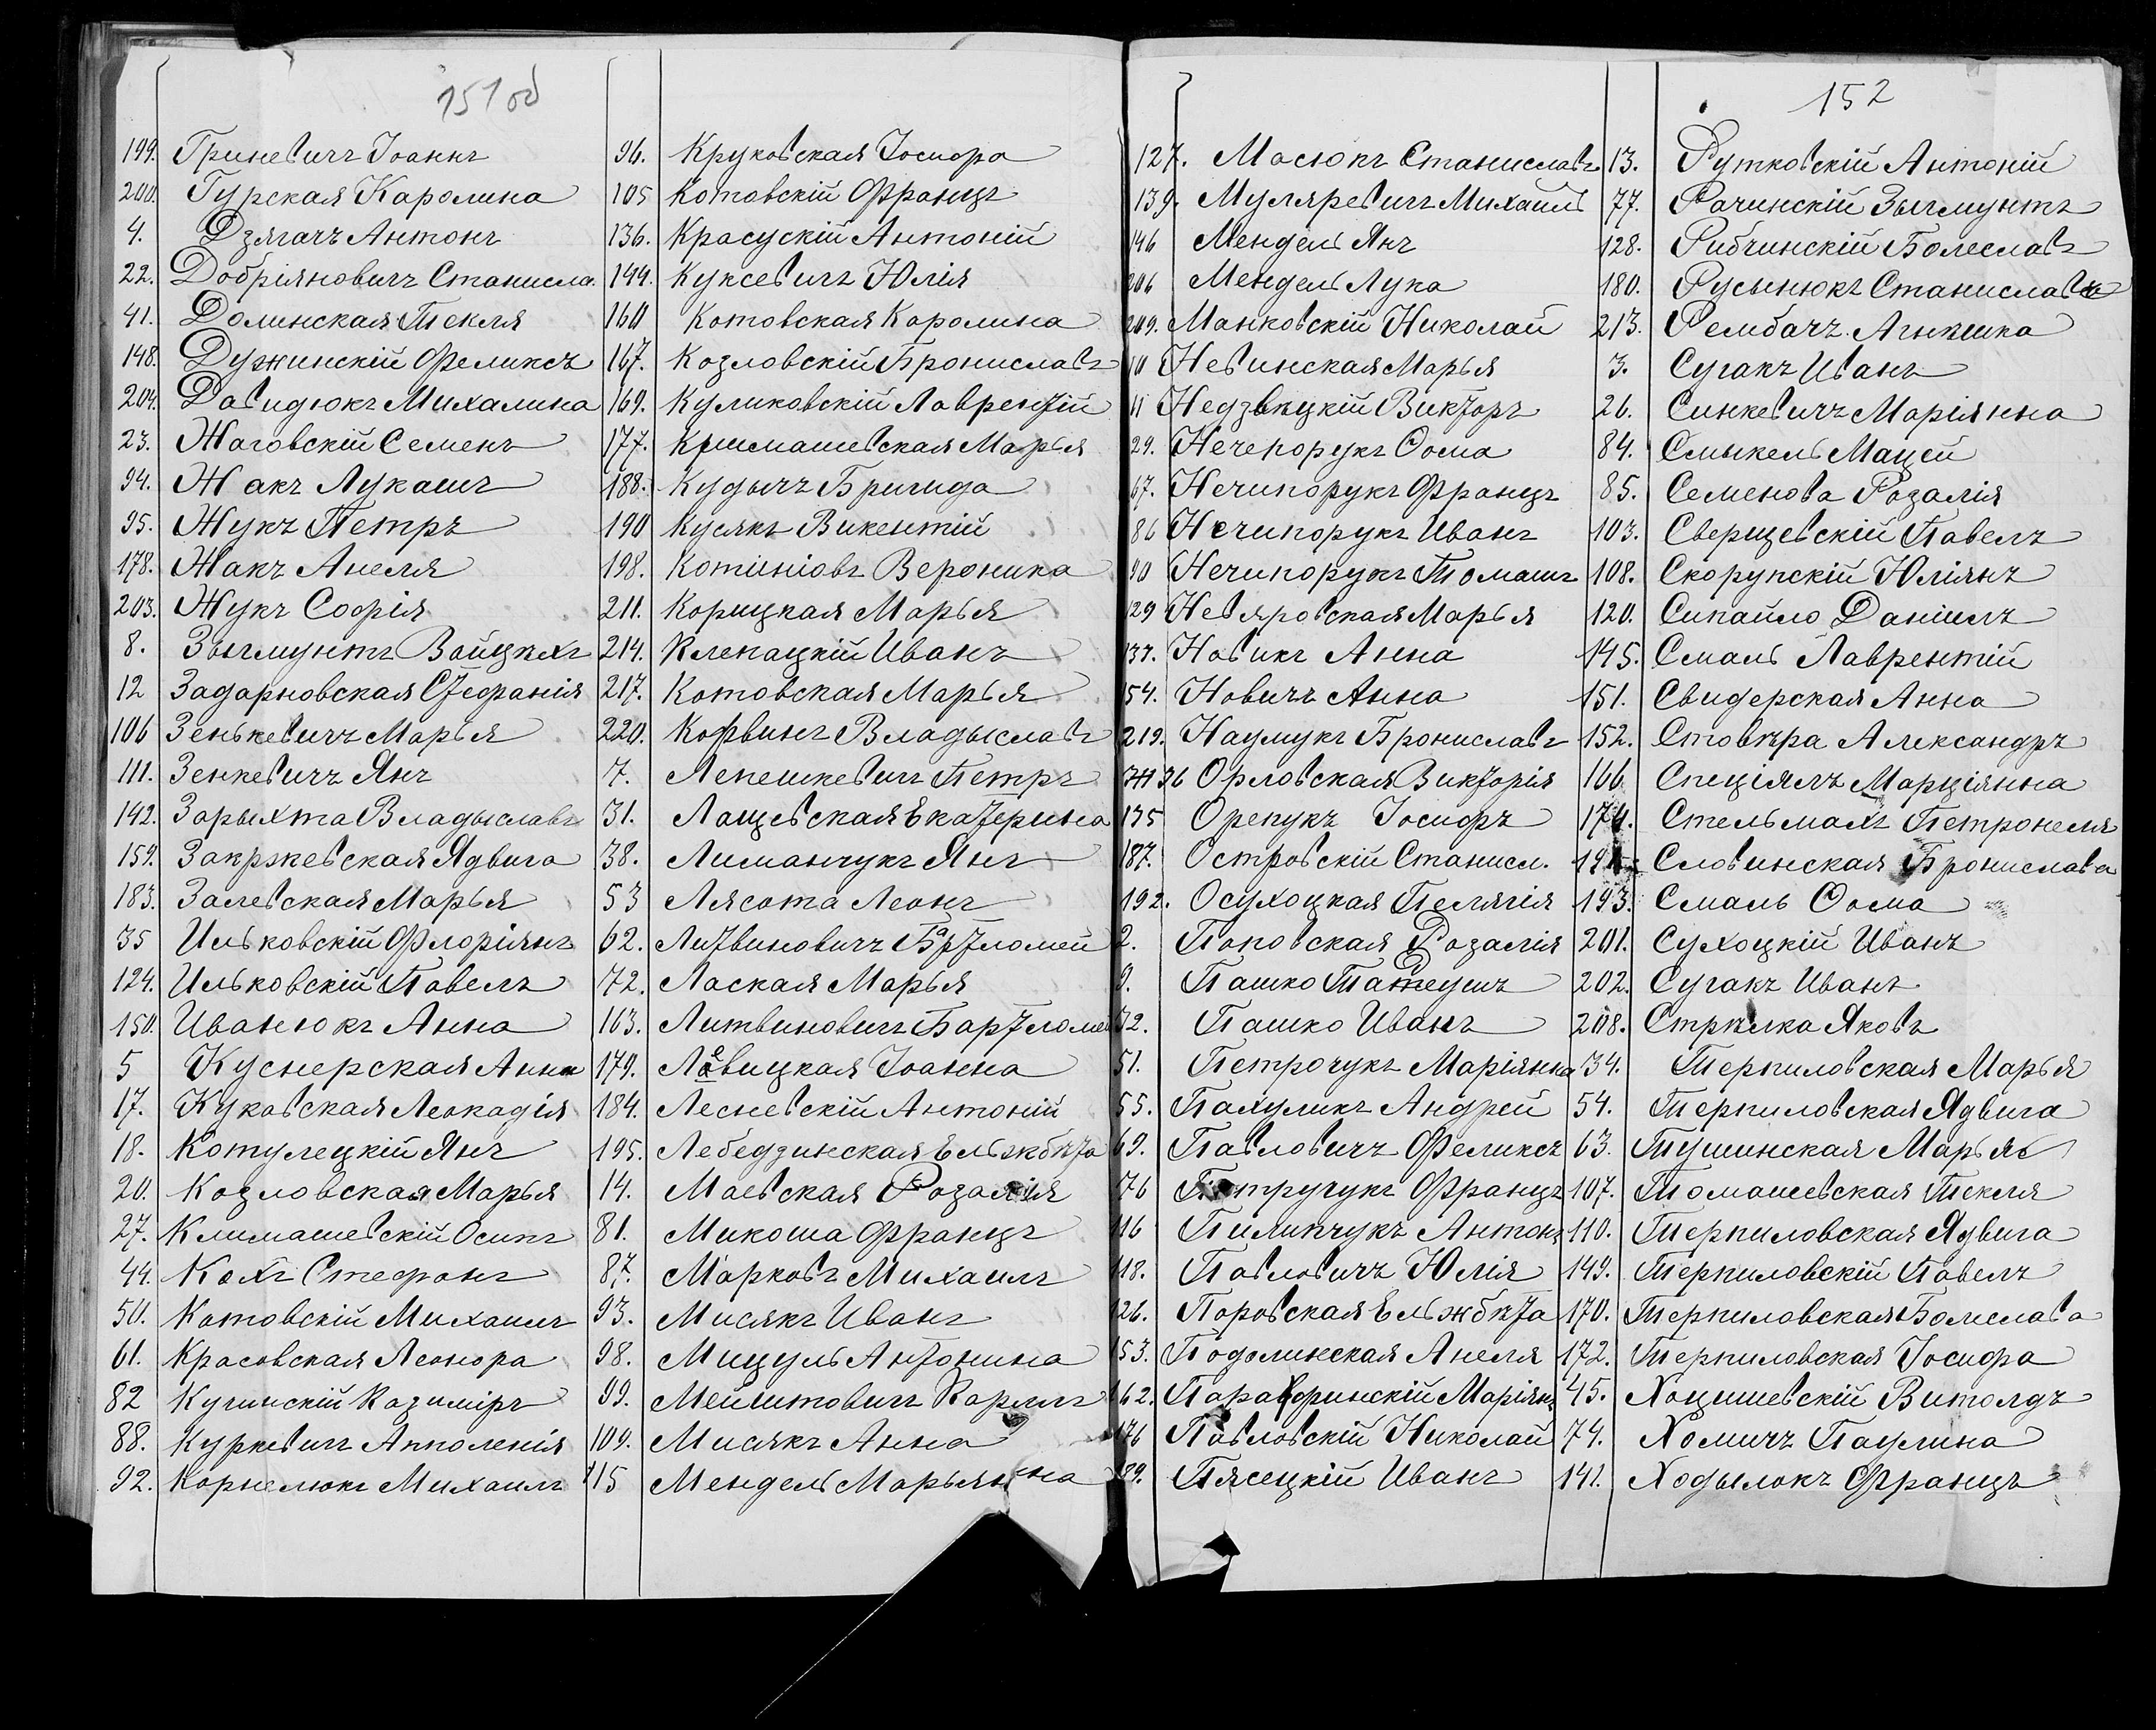 151 об
199. Гриневичъ Іоаннъ
200. Гурская Каролина
4. Дзягачъ Антонъ
22. Добріяновичъ Станисла.
41. Долинская Текля
148. Дужинскій Феликсъ
204. Давидюкъ Михалина
23. Жаговскій Семенъ
94. Жакъ Лукашъ
95. Жукъ Петръ
178. Жакъ Анеля
203. Жукъ Софія
8. Зыгмунтъ Войцѣхъ
12 Задарновская Стефанія
106 Зенькевичъ Марья
111. Зенкевичъ Янъ
142. Зарыхта Владыславъ
159. Закржевская Ядвига
183. Залевская Марья
35 Ильковскій Флоріянъ
124. Ильковскій Павелъ
150. Иванюкъ Анна
5 Куснерская Анна
17. Куковская Леокадія
18. Котулецкій Янъ
20. Козловская Марья
27. Климашевскій Осипъ
44. Кохъ Стефанъ
50. Котовскій Михаилъ
61. Красовская Леонора
82 Кучинскій Казиміръ
88. Куркевичъ Апполенія
92. Корнелюкъ Михаилъ
96. Круковская Іосифа
105 Котовскій Францъ
136. Красускій Антоній
144. Куксевичъ Юлія
160 Котовская Каролина
167. Козловскій Брониславъ
169. Куликовскій Лаврентій
177. Климашевская Марья
188. Кудычъ Бригида
190 Кусякъ Викентій
198. Котиніовъ Вероника
211. Корицкая Марья
214. Клепацкій Иванъ
217. Котовская Марья
220. Корвинъ Владыславъ
7. Лепешкевичъ Петръ
31. Лащевская Екатерина
38. Лиманчукъ Янъ
53 Лясота Леонъ
62. Литвиновичъ Бартломей
72. Лаская Марья
163. Литвиновичъ Бартломей
179. Левицкая Іоанна
184. Лесневскій Антоній
195. Лебедзинская Ельжбѣта
14. Маевская Розалія
81. Микоша Францъ
87. Марковъ Михаилъ
93. Мисякъ Иванъ
98. Мицуль Антонина
99. Мейштовичъ Карлъ
109. Мисякъ Анна
115 Мендель Марьянна
152
127. Мосюкъ Станиславъ
139. Муляревичъ Михаилъ
146 Мендель Янъ
206 Мендель Лука
209. Манковскій Николай
10 Невинская Марья
11 Недзвѣцкій Викторъ
29. Нечепорукъ Ѳома
67. Нечипорукъ Францъ
86 Нечипорукъ Иванъ
90 Нечипорукъ Томашъ
129 Невяровская Марья
137. Новикъ Анна
154. Новичъ Анна
219. Наумукъ Брониславъ
36 Орловская Викторія
175 Орепукъ Іосифъ
187. Островскій Станисл.
192. Осухоцкая Пелягія
2. Поповская Розалія
9. Пашко Татеушъ
32. Пашко Иванъ
51. Петрочукъ Маріянна
55. Пахуликъ Андрей
69. Павловичъ Феликсъ
76 Петручукъ Францъ
116 Пилипчукъ Антонъ
118. Павловичъ Юлія
126. Поровская Ельжбѣта
153. Подолинская Анеля
162. Парафинскій Маріянъ
176 Павловскій Николай
189. Пясецкій Иванъ
13. Рутковскій Антоній
77. Рачинскій Зыгмунтъ
128. Рибчинскій Болеславъ
180. Русынюкъ Станиславъ
213. Рембачъ Агнѣшка
3. Сугакъ Иванъ
26. Синкевичъ Маріянна
84. Смыкель Мацей
85. Семенова Розалія
103. Сверщевскій Павелъ
108. Скорупскій Юліянъ
120. Сипайло Даніилъ
145. Смаль Лаврентій
151. Свидерская Анна
152. Стовѣра Александръ
166 Специялъ Марціянна
174. Стельмахъ Петронеля
Словинская Бронислава
193. Смаль Ѳома
201. Сухоцкій Иванъ
202. Сугакъ Иванъ
208. Стрѣлка Яковъ
34. Терпиловская Марья
54. Терпиловская Ядвига
63. Тушинская Марья
107. Томашевская Текля
110. Терпиловская Ядвига
149. Терпиловскій Павелъ
170. Терпиловская Болеслава
172. Терпиловская Іосифа
45. Хоцишевскій Витолдъ
74. Хомичъ Паулина
141. Ходылокъ Францъ